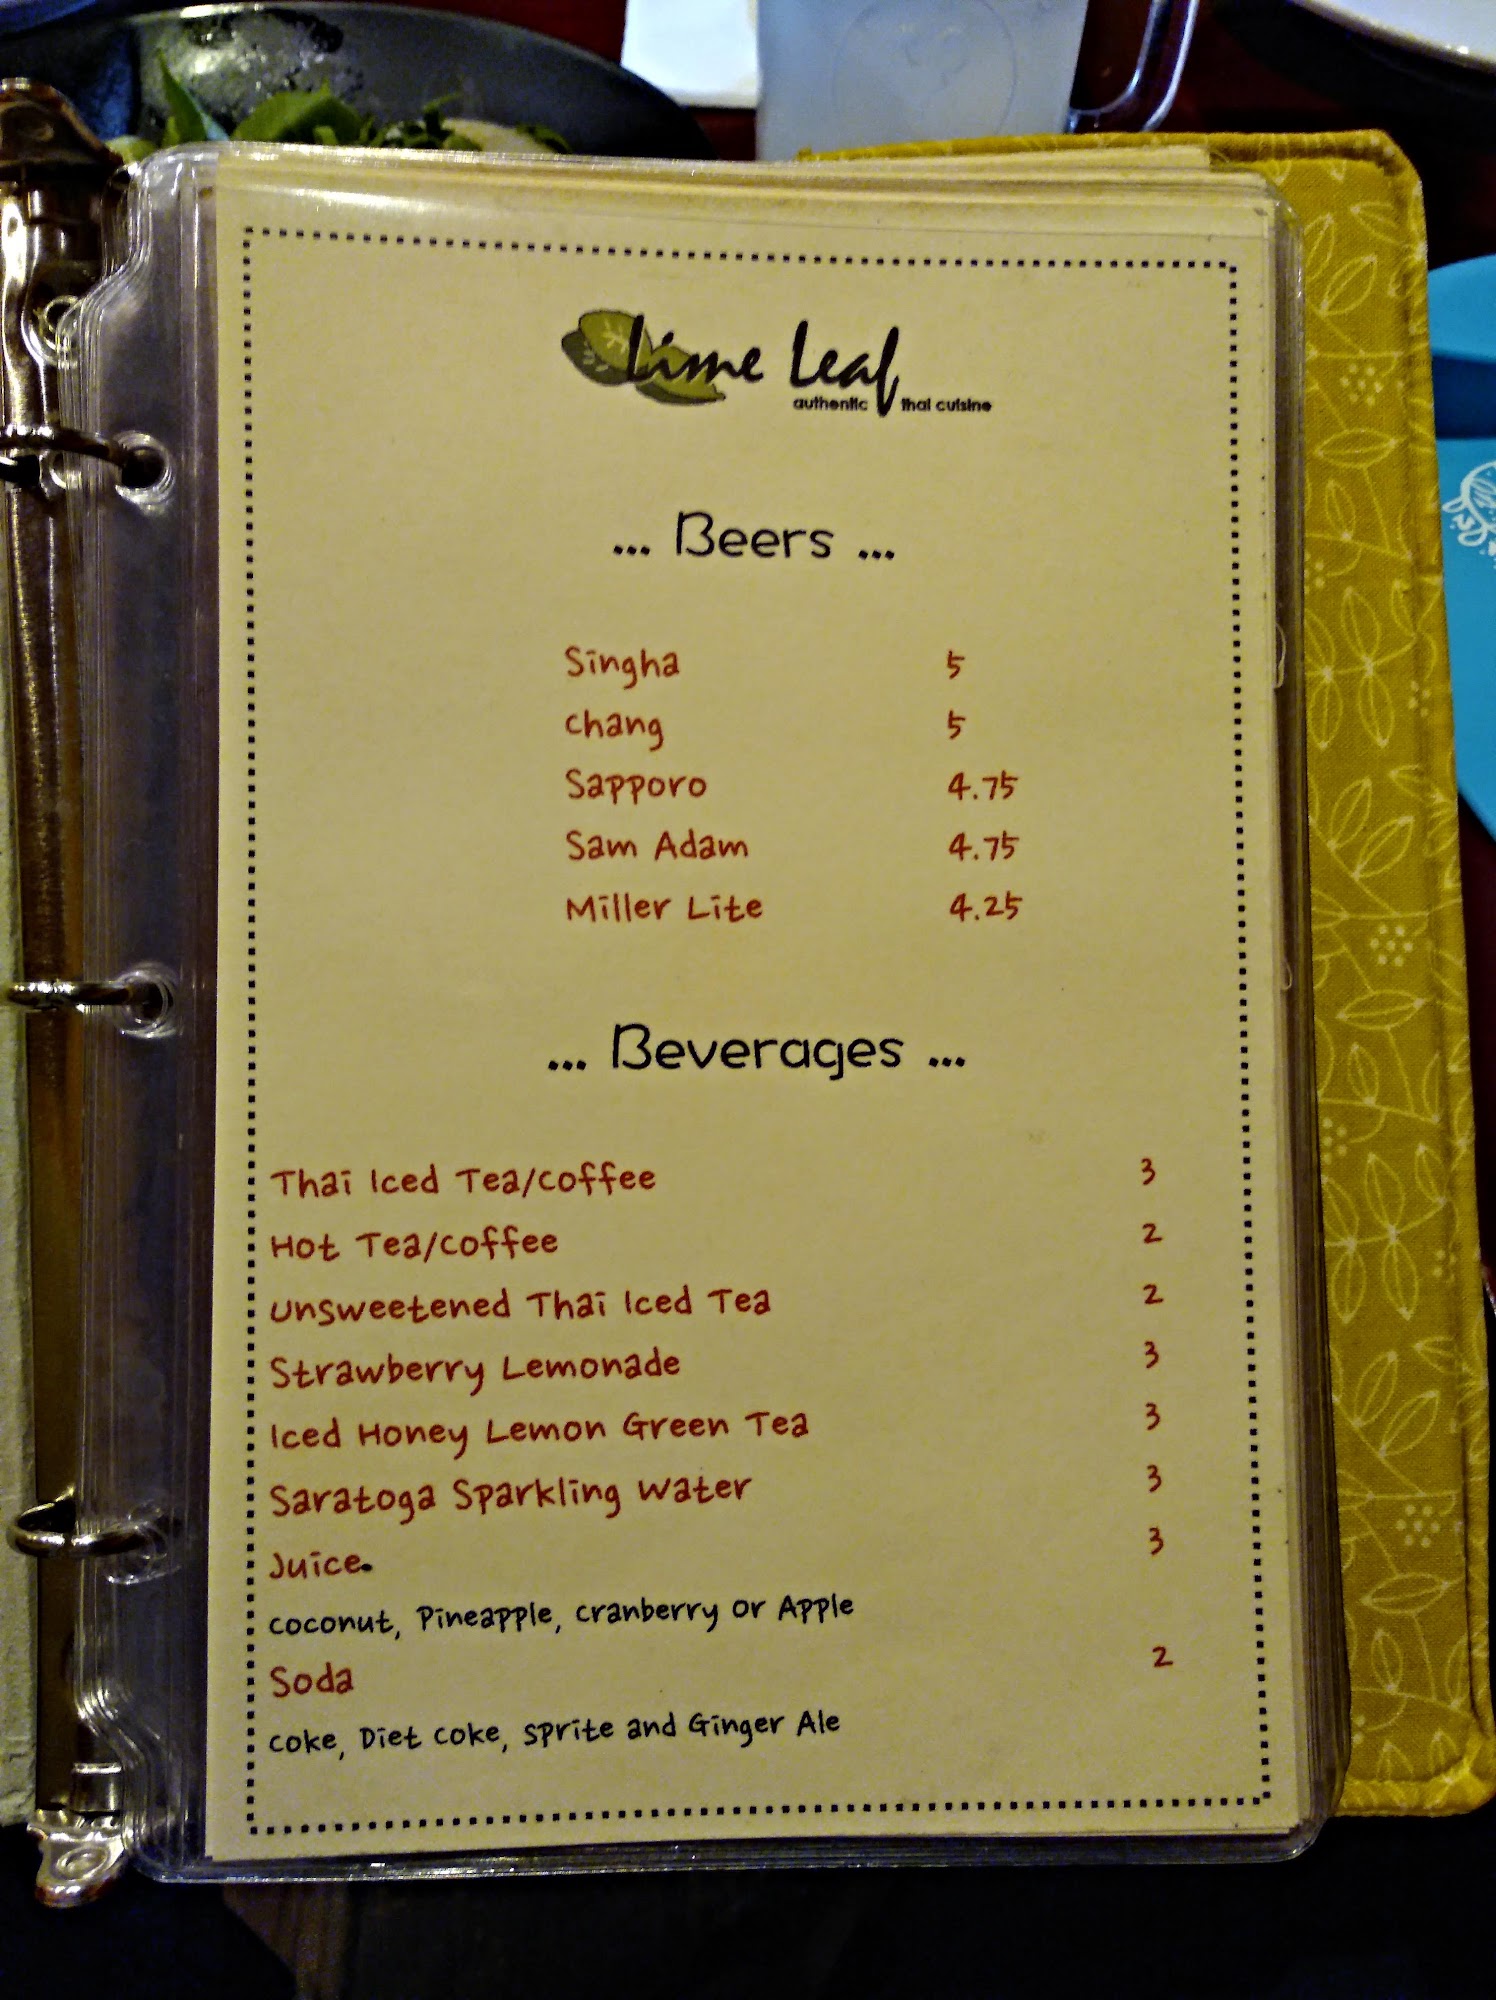 Lime Leaf
authentic thai cuisine
... Beers ...
Singha 5
Chang 5
Sapporo 4.75
Sam Adam 4.75
Miller Lite 4.25
... Beverages ...
Thai Iced Tea/Coffee 3
Hot Tea/Coffee 2
Unsweetened Thai Iced Tea 2
Strawberry Lemonade 3
Iced Honey Lemon Green Tea 3
Saratoga Sparkling Water 3
Juice. 3
Coconut, Pineapple, Cranberry or Apple
Soda 2
Coke, Diet Coke, Sprite and Ginger Ale